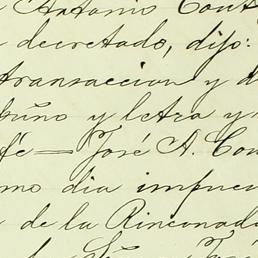 Antonio Cont
decretado, dijo:
transaccion y d
puño y letra y
fé = José A. Con
mo dia impues
de la Rinconada